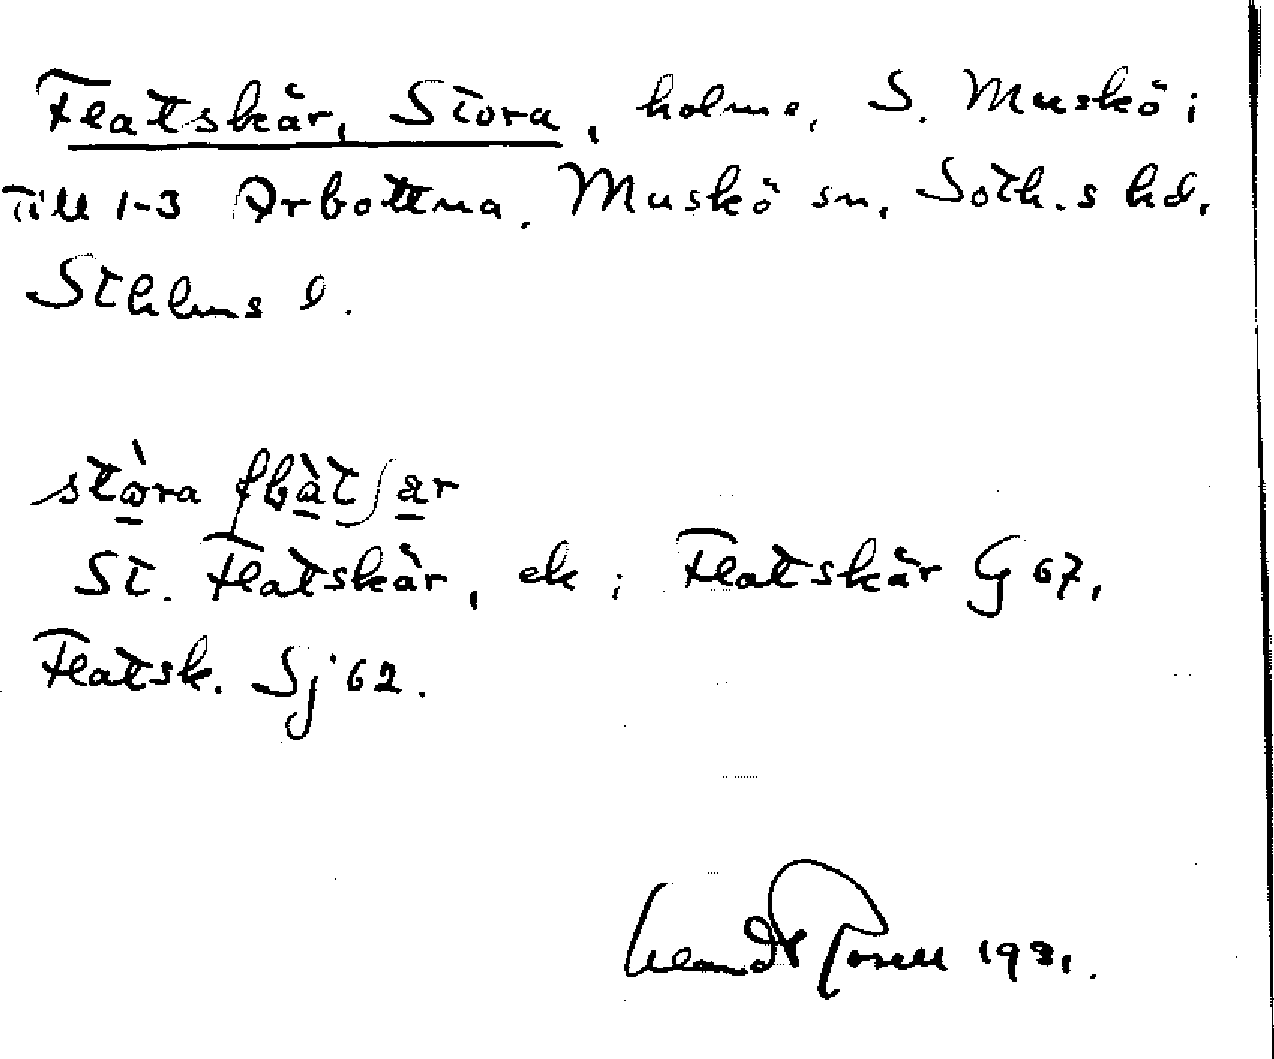 Flatskär, Stora, holme, S. Muskö;
Till 1-3 Arbottna. Muskö sn, Soth.s hd,
Sthlms l.
stòra flàtʃar
St. Flatskär, ek; Flatskär G 67,
Flatsk. Sj 62.
1931.